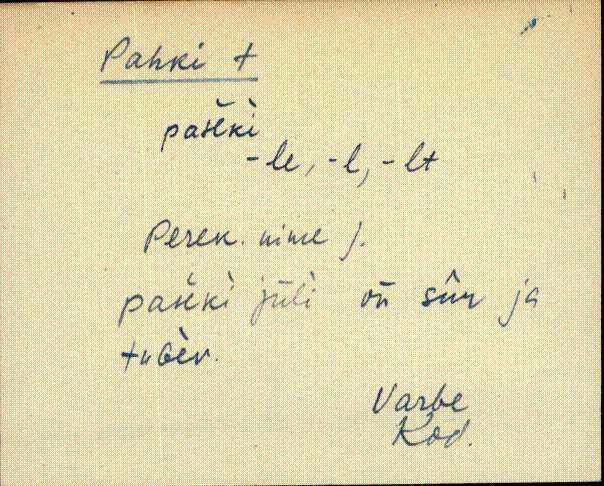 Pahki t
paški
-le, -l, -lt
Perek. nime j.
paški jüli on sūr ja
tuGèv.
Varbe
Kod.